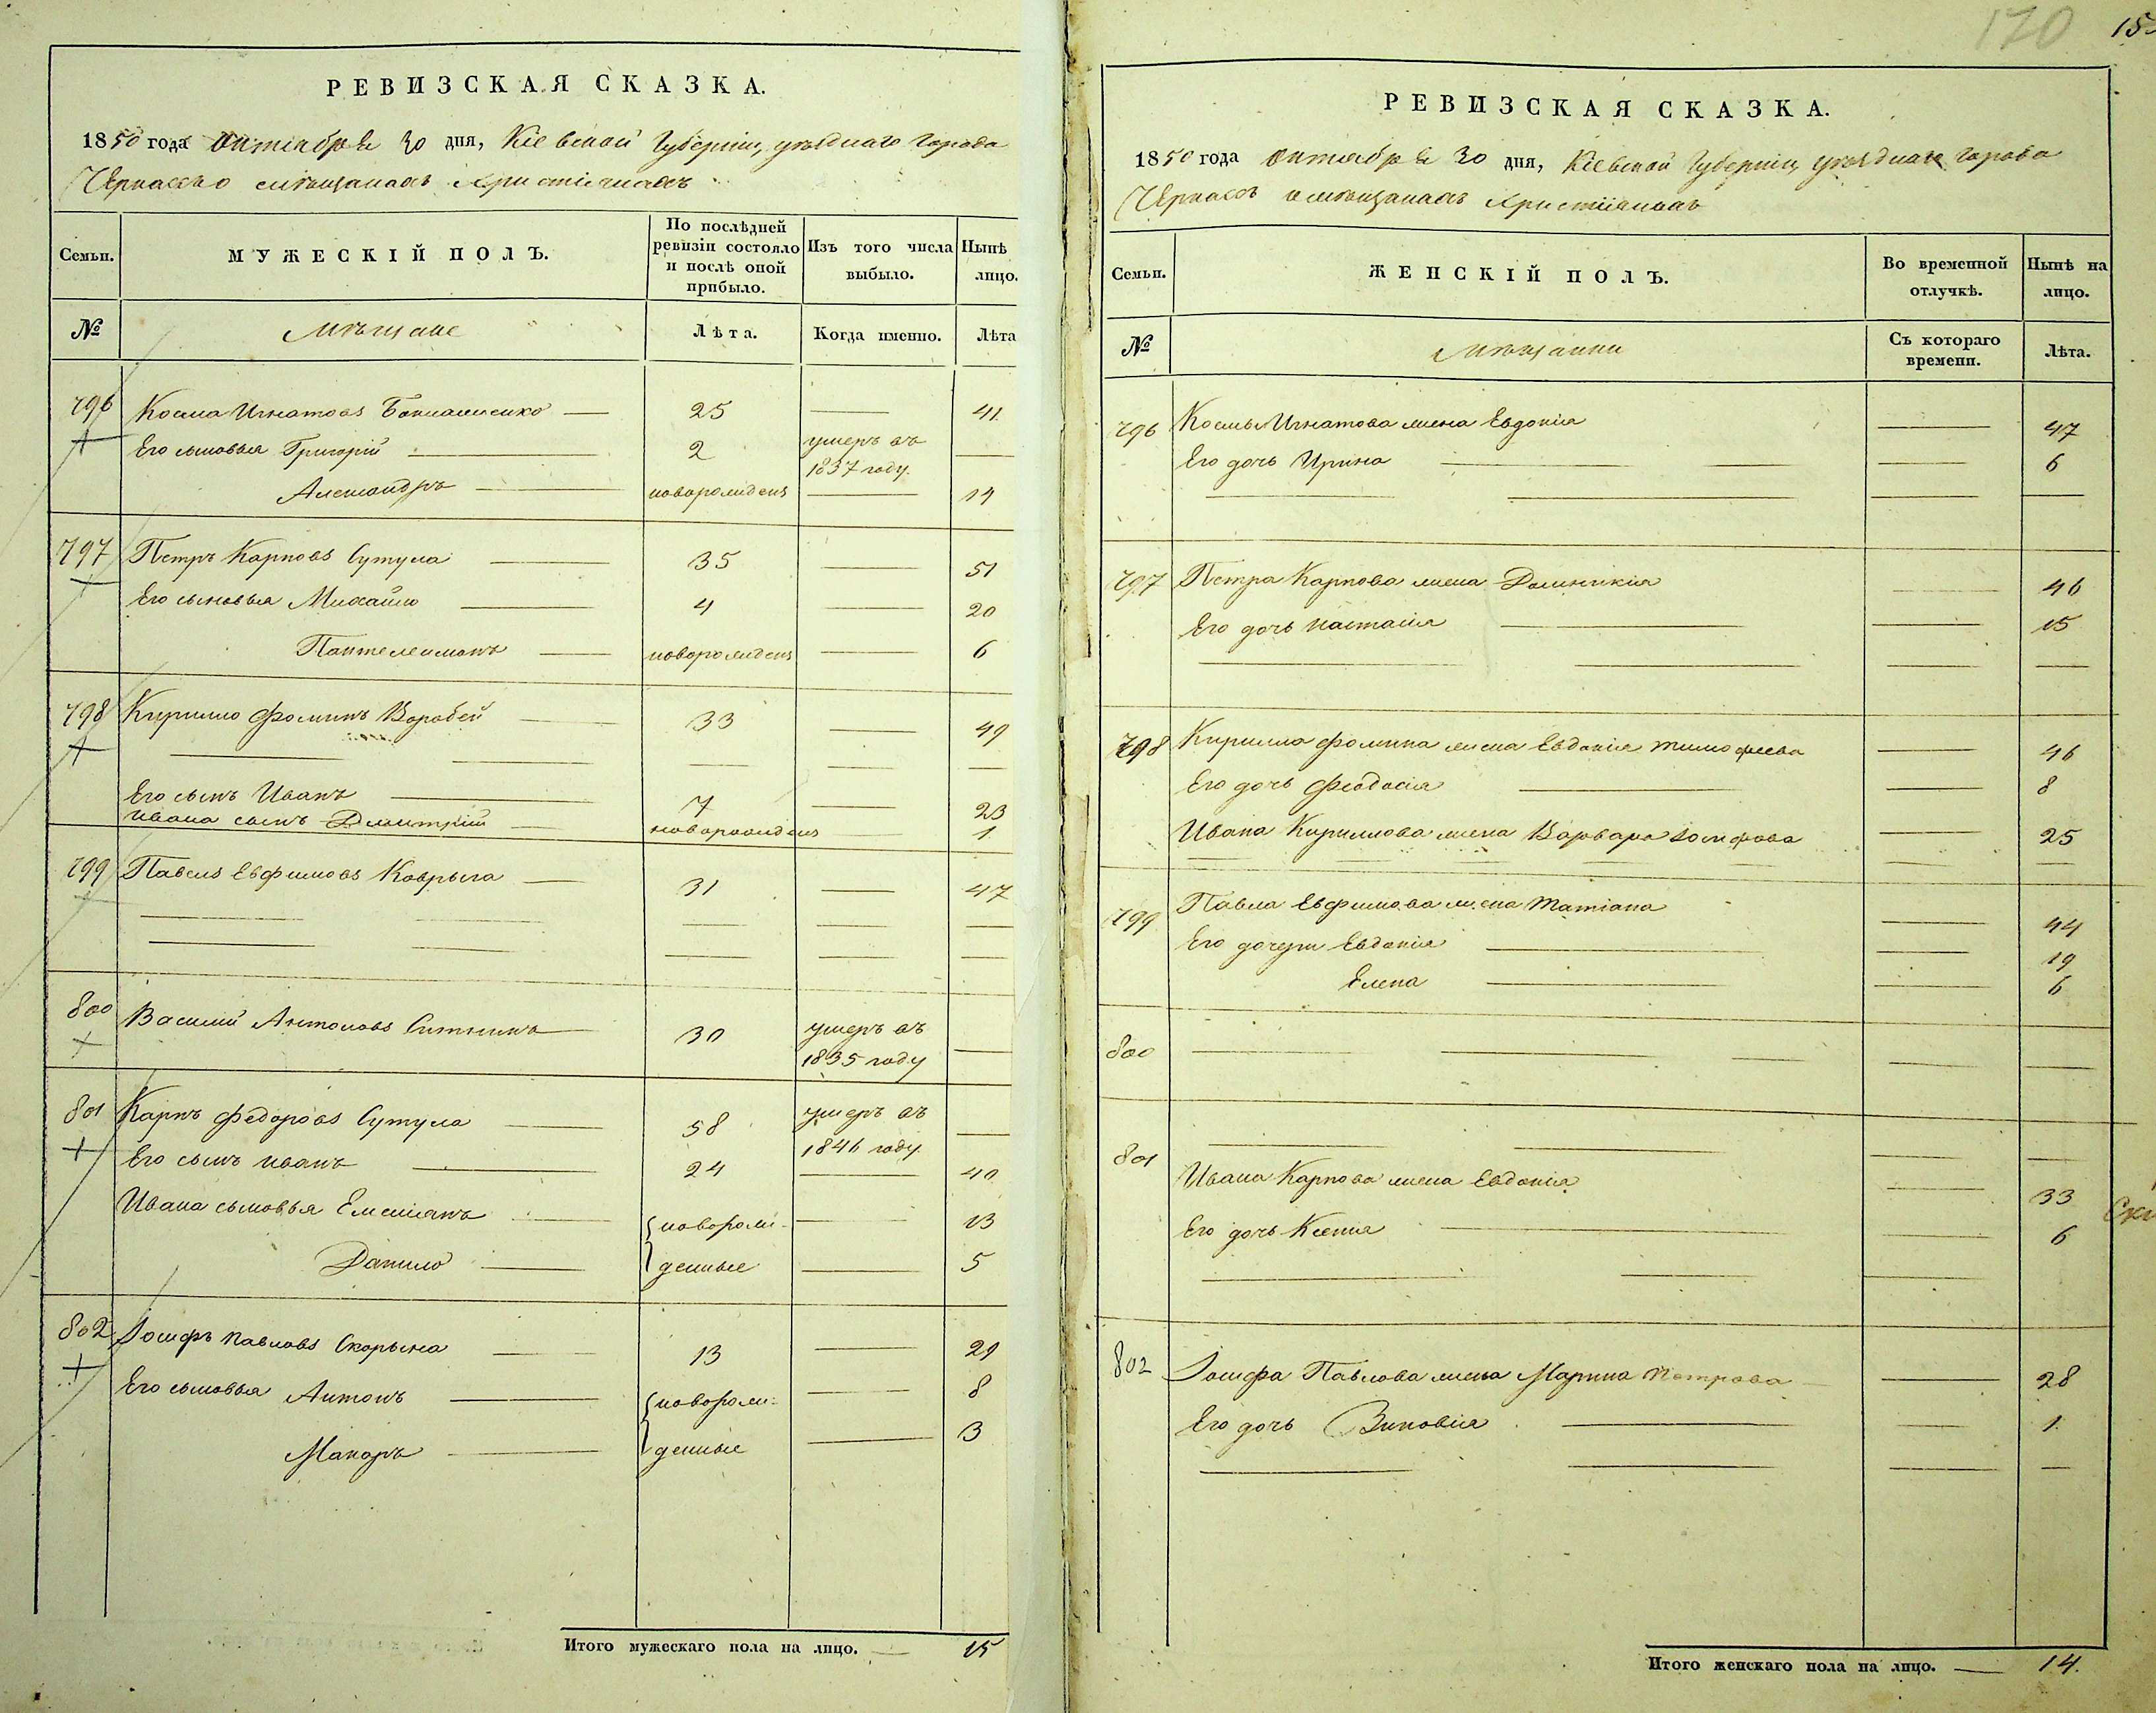 РЕВИЗСКАЯ СКАЗКА.
1850 года Октября 30 дня, Кіевской Губерніи, уѣзднаго города
Черкассъ о мѣщанахъ христіянахъ
Семьи.
МУЖЕСКІЙ ПОЛЪ.
По послѣдней ревизіи состояло и послѣ оной прибыло.
Изъ того числа выбыло.
Нынѣ лицо.
№
Мѣщане
Лѣта.
Когда именно.
Лѣта
796 Косма Игнатовъ 25 — 41
Его сыновья Григорій 2 умеръ въ 1837 году.
Александръ новорожденъ — 14
797 Петръ Карповъ Сутула 35 — 51
Его сыновья Михайло 4 — 20
Пантелеимонъ новорожденъ — 6
798 Кирилло Фоминъ Воробей 33 — 49
Его сынъ Иванъ 7 — 23
Ивана сынъ Дмитрій новорожденъ 1
799 Павелъ Евфимовъ Коврыга 31 — 47
800 Василій Антоновъ Ситникъ 30 умеръ въ 1835 году —
801 Карпъ Федоровъ Сутула 58 умеръ въ 1846 году —
Его сынъ Иванъ 24 — 40
Ивана сыновья Емеліянъ новорож- — 13
Данило денные — 5
802 Іосифъ Павловъ Скорына 13 — 29
Его сыновья Антонъ новорож- — 8
Макаръ денные — 3
Итого мужескаго пола на лицо. — 15
170
РЕВИЗСКАЯ СКАЗКА.
1850 года Октября 30 дня, Кіевской Губерніи, уѣзднаго города
Черкассъ о мѣщанахъ христіянахъ
Семьи.
ЖЕНСКІЙ ПОЛЪ.
Во временной отлучкѣ.
Нынѣ на лицо.
№
Мѣщанки
Съ котораго времени.
Лѣта.
796 Космы Игнатова жена Евдокія — 47
Его дочь Ирина — 6
797 Петра Карпова жена Домникія — 46
Его дочь Настасія — 15
798 Кирилла Фомина жена Евдокія Тимофеева — 46
Его дочь Феодосія 8
Ивана Кириллова жена Варвара Іосифова — 25
799 Павла Евфимова жена Татіана — 44
Его дочери Евдокія — 19
Елена — 6
800
801
Ивана Карпова жена Евдокія — 33
Его дочь Ксенія — 6
802 Іосифа Павлова жена Марина Петрова — 28
Его дочь Зиновія — 1.
Итого женскаго пола на лицо. — 14.